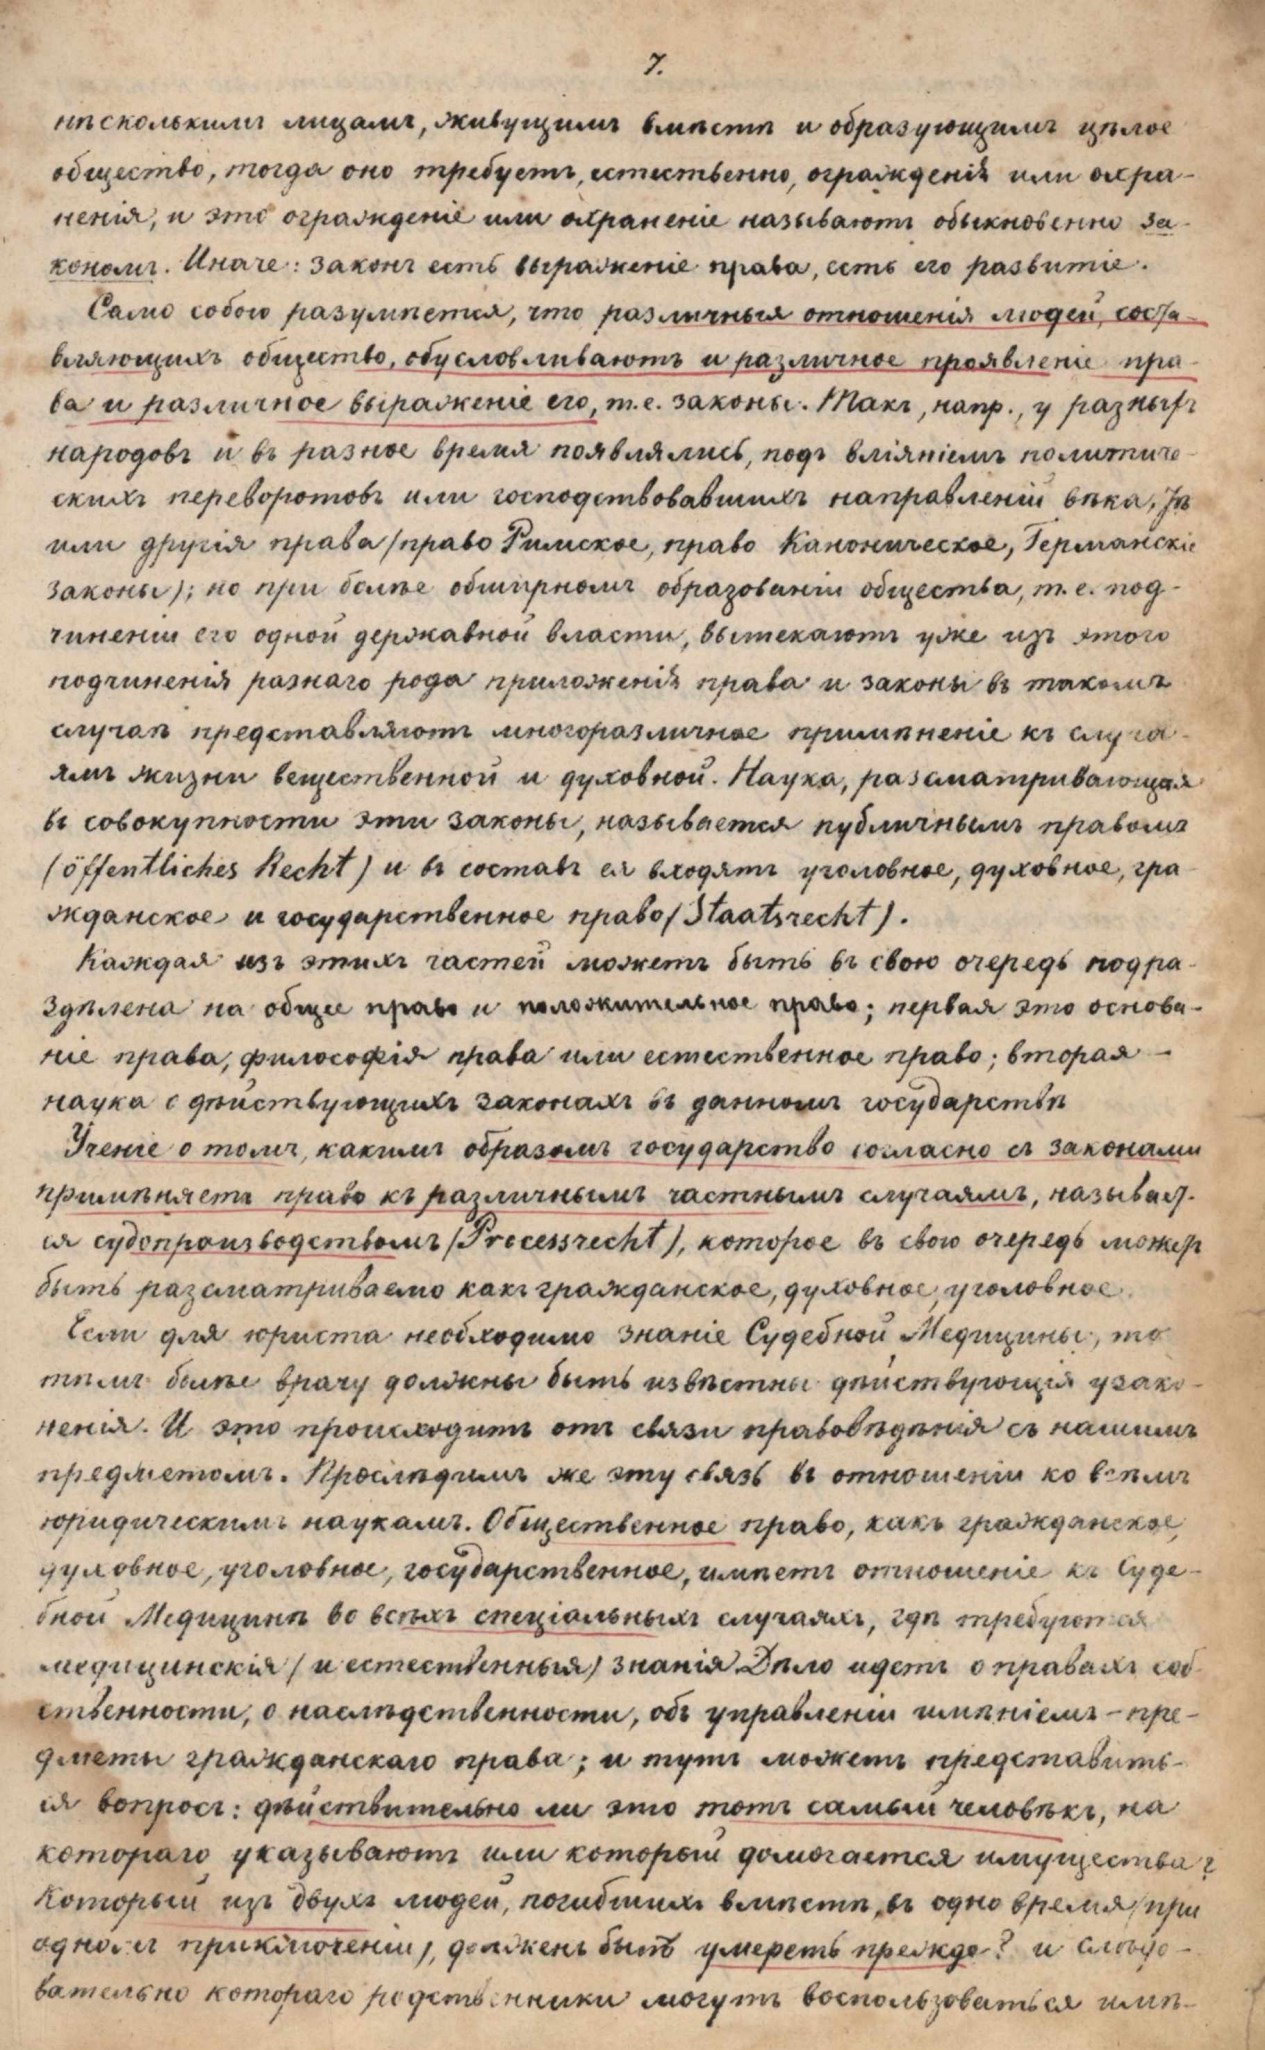 7.
нѣсколькимъ лицамъ, живущимъ вмѣстѣ и образующимъ цѣлое
общество, тогда оно требуетъ, естественно, огражденія или охра-
ненія, и это огражденіе или охраненіе называютъ обыкновенно за-
кономъ. Иначе: законъ есть выраженіе права, есть его развитіе.
Само собою разумѣется, что различныя отношенія людей, соста-
вляющихъ общество, обусловливаютъ и различное проявленіе пра-
ва и различное выраженіе его, т.е. законы. Такъ, напр., у разныхъ
народовъ и въ разное время появлялись, подъ вліяніемъ политиче-
скихъ переворотовъ или господствовавшихъ направленій вѣка, тѣ
или другія права (право Римское, право Каноническое, Германскіе
законы); но при болѣе обширномъ образованіи общества, т.е. под-
чиненіи его одной державной власти, вытекаютъ уже изъ этого
подчиненія разнаго рода приложенія права и законы въ такомъ
случаѣ представляютъ многоразличное примѣненіе къ случа-
ямъ жизни вещественной и духовной. Наука, разсматривающая
въ совокупности эти законы, называется публичнымъ правомъ
(öffentliches Recht) и въ составъ ея входятъ уголовное, духовное, гра-
жданское и государственное право (Staatsrecht).
Каждая изъ этихъ частей можетъ быть въ свою очередь подра-
здѣлена на общее право и положительное право; первая это основа-
ніе права, философія права или естественное право; вторая –
наука о дѣйствующихъ законахъ въ данномъ государствѣ
Ученіе о томъ, какимъ образомъ государство согласно съ законами
примѣняетъ право къ различнымъ частнымъ случаямъ, называет-
ся судопроизводствомъ (Processrecht), которое въ свою очередь можетъ
быть разсматриваемо какъ гражданское, духовное, уголовное.
Если для юриста необходимо знаніе Судебной Медицины, то
тѣмъ болѣе врачу должны быть извѣстны дѣйствующія узако-
ненія. И это происходитъ отъ связи правовѣдѣнія съ нашимъ
предметомъ. Прослѣдимъ же эту связь въ отношеніи ко всѣмъ
юридическимъ наукамъ. Общественное право, какъ гражданское,
духовное, уголовное, государственное, имѣетъ отношеніе къ Суде-
бной Медицинѣ во всѣхъ спеціальныхъ случаяхъ, гдѣ требуются
медицинскія (и естественныя) знанія. Дѣло идетъ о правахъ соб-
ственности, о наслѣдственности, объ управленіи имѣніемъ – пре-
дметы гражданскаго права; и тутъ можетъ представить-
ся вопросъ: дѣйствительно ли это тотъ самый человѣкъ, на
котораго указываютъ или который домогается имущества?
Который изъ двухъ людей, погибшихъ вмѣстѣ, въ одно время (при
одномъ приключеніи), долженъ быть умереть прежде? и слѣдо-
вательно котораго родственники могутъ воспользоваться имѣ-